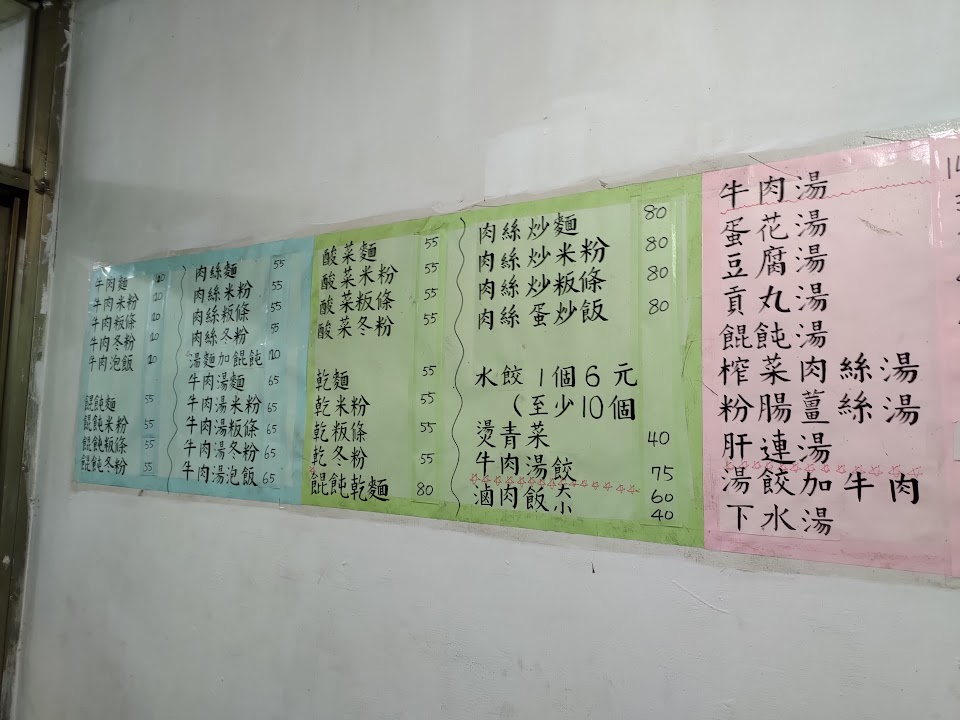 牛肉麵
牛肉米粉
牛肉粄條
牛肉冬粉
牛肉泡飯
餛飩麵 55
餛飩米粉 55
餛飩粄條 55
餛飩冬粉 55
肉絲麵 55
肉絲米粉 55
肉絲粄條 55
肉絲冬粉 55
湯麵加餛飩
牛肉湯麵 65
牛肉湯米粉 65
牛肉湯粄條 65
牛肉湯冬粉 65
牛肉湯泡飯 65
酸菜麵 55
酸菜米粉 55
酸菜粄條 55
酸菜冬粉 55
乾麵 55
乾米粉 55
乾粄條 55
乾冬粉 55
餛飩乾麵 80
肉絲炒麵 80
肉絲炒米粉 80
肉絲炒粄條 80
肉絲蛋炒飯 80
水餃1個6元
(至少10個
燙青菜 40
牛肉湯餃 75
滷肉飯 大 60
小 40
牛肉湯
蛋花湯
豆腐湯
貢丸湯
餛飩湯
榨菜肉絲湯
粉腸薑絲湯
肝連湯
湯餃加牛肉
下水湯